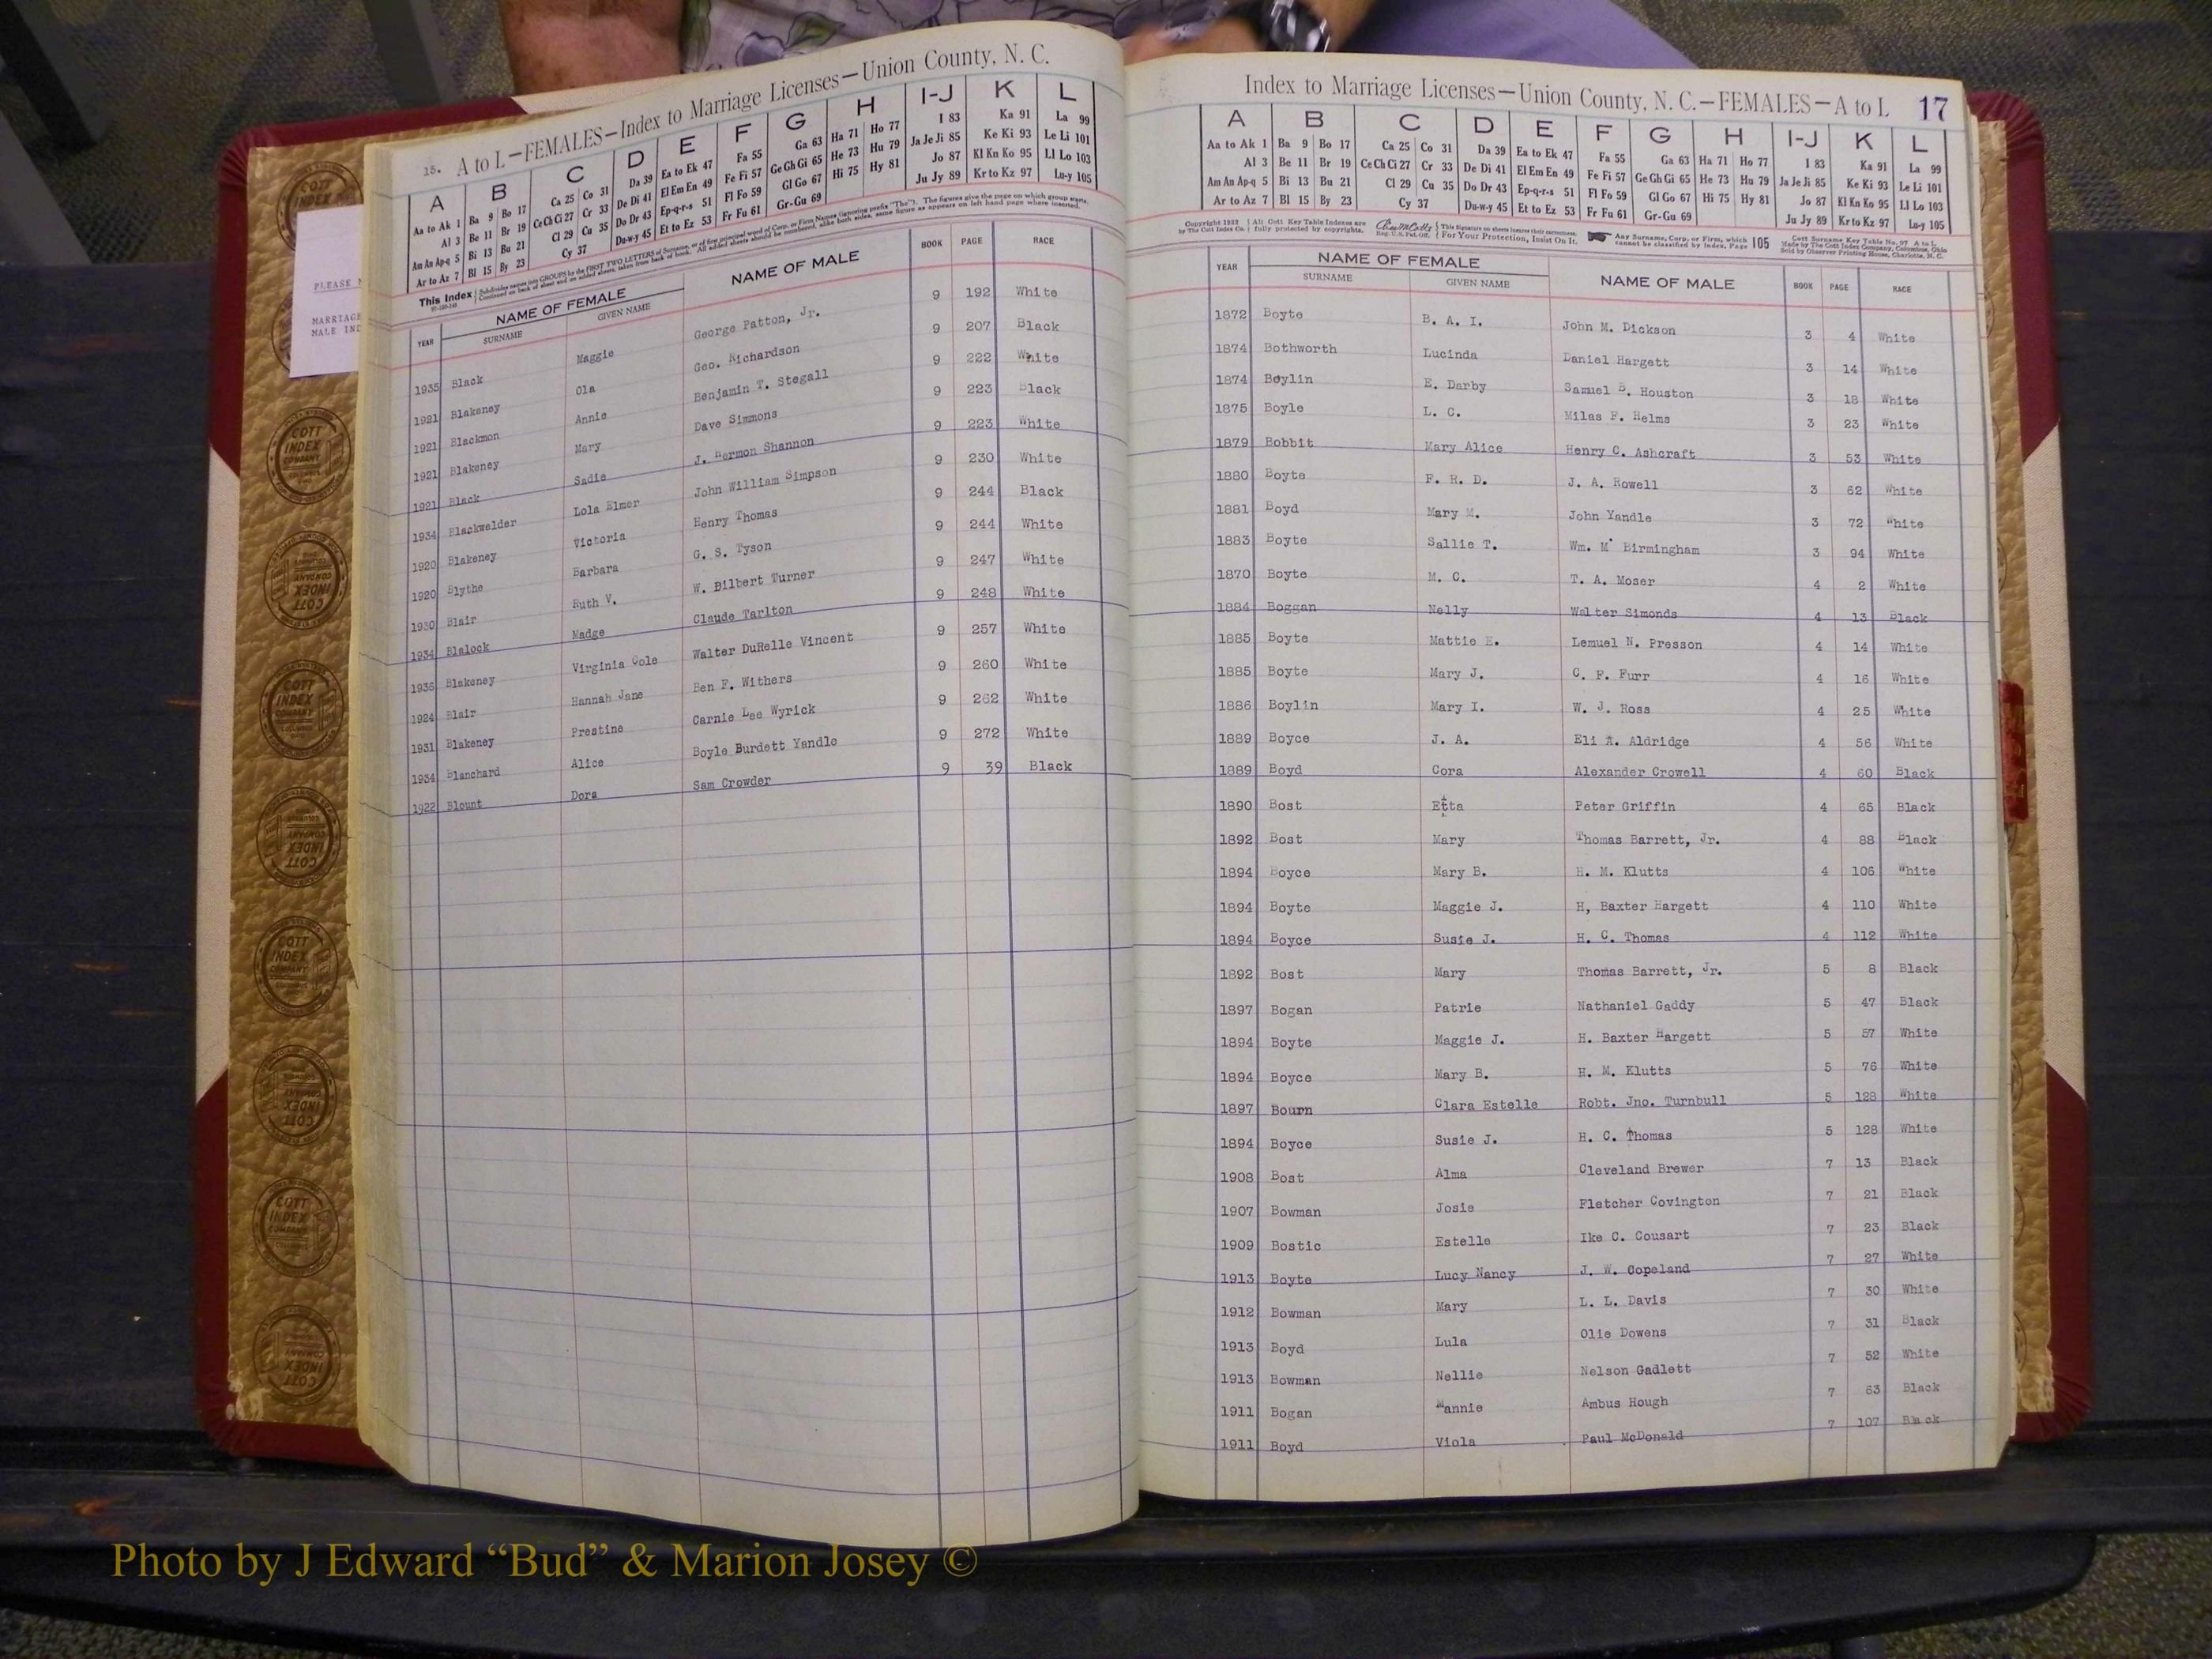 PLEASE
MARRIAGE
MALE IND
15. A to L—FEMALES—Index to Marriage Licenses—Union County, N. C.
A B C D E F G H I-J K L
Aa to Ak 1 Ba 9 Bo 17 Ca 25 Co 31 Da 39 Ea to Ek 47 Fa 55 Ga 63 Ha 71 Ho 77 I 83 Ka 91 La 99
Al 3 Be 11 Br 19 Ce Ch Ci 27 Cr 33 De Di 41 El Em En 49 Fe Fi 57 Ge Gh Gi 65 He 73 Hu 79 Ja Je Ji 85 Ke Ki 93 Le Li 101
Am An Ap-q 5 Bi 13 Bu 21 Cl 29 Cu 35 Do Dr 43 Ep-q-r-s 51 Fl Fo 59 Gl Go 67 Hi 75 Hy 81 Jo 87 Kl Kn Ko 95 Ll Lo 103
Ar to Az 7 Bl 15 By 23 Cy 37 Du-w-y 45 Et to Ez 53 Fr Fu 61 Gr-Gu 69 Ju Jy 89 Kr to Kz 97 Lu-y 105
This Index
YEAR NAME OF FEMALE NAME OF MALE BOOK PAGE RACE
SURNAME GIVEN NAME
1935 Black Maggie George Patton, Jr. 9 192 White
1921 Blakeney Ola Geo. Richardson 9 207 Black
1921 Blackmon Annie Benjamin T. Stegall 9 222 White
1921 Blakeney Mary Dave Simmons 9 223 Black
1921 Black Sadie J. Hermon Shannon 9 223 White
1934 Blackwelder Lola Elmer John William Simpson 9 230 White
1920 Blakeney Victoria Henry Thomas 9 244 Black
1920 Blythe Barbara G. S. Tyson 9 244 White
1930 Blair Ruth V. W. Bilbert Turner 9 247 White
1934 Blalock Madge Claude Tarlton 9 248 White
1936 Blakeney Virginia Cole Walter DuRelle Vincent 9 257 White
1924 Blair Hannah Jane Ben F. Withers 9 260 White
1931 Blakeney Prestine Carnie Lee Wyrick 9 262 White
1934 Blanchard Alice Boyle Burdett Yandle 9 272 White
1922 Blount Dora Sam Crowder 9 39 Black
Index to Marriage Licenses—Union County, N. C.—FEMALES—A to L 17
A B C D E F G H I-J K L
Aa to Ak 1 Ba 9 Bo 17 Ca 25 Co 31 Da 39 Ea to Ek 47 Fa 55 Ga 63 Ha 71 Ho 77 I 83 Ka 91 La 99
Al 3 Be 11 Br 19 Ce Ch Ci 27 Cr 33 De Di 41 El Em En 49 Fe Fi 57 Ge Gh Gi 65 He 73 Hu 79 Ja Je Ji 85 Ke Ki 93 Le Li 101
Am An Ap-q 5 Bi 13 Bu 21 Cl 29 Cu 35 Do Dr 43 Ep-q-r-s 51 Fl Fo 59 Gl Go 67 Hi 75 Hy 81 Jo 87 Kl Kn Ko 95 Ll Lo 103
Ar to Az 7 Bl 15 By 23 Cy 37 Du-w-y 45 Et to Ez 53 Fr Fu 61 Gr-Gu 69 Ju Jy 89 Kr to Kz 97 Lu-y 105
YEAR NAME OF FEMALE NAME OF MALE BOOK PAGE RACE
SURNAME GIVEN NAME
1872 Boyte B. A. I. John M. Dickson 3 4 White
1874 Bothworth Lucinda Daniel Hargett 3 14 White
1874 Boylin E. Darby Samuel B. Houston 3 18 White
1875 Boyle L. C. Milas F. Helms 3 23 White
1879 Bobbit Mary Alice Henry C. Ashcraft 3 53 White
1880 Boyte F. R. D. J. A. Howell 3 62 White
1881 Boyd Mary M. John Yandle 3 72 White
1883 Boyte Sallie T. Wm. M' Birmingham 3 94 White
1870 Boyte M. C. T. A. Moser 4 2 White
1884 Boggan Nelly Walter Simonds 4 13 Black
1885 Boyte Mattie E. Lemuel N. Presson 4 14 White
1885 Boyte Mary J. C. F. Furr 4 16 White
1886 Boylin Mary I. W. J. Ross 4 25 White
1889 Boyce J. A. Eli A. Aldridge 4 56 White
1889 Boyd Cora Alexander Crowell 4 60 Black
1890 Bost Etta Peter Griffin 4 65 Black
1892 Bost Mary Thomas Barrett, Jr. 4 88 Black
1894 Boyce Mary B. H. M. Klutts 4 106 White
1894 Boyte Maggie J. H, Baxter Hargett 4 110 White
1894 Boyce Susie J. H. C. Thomas 4 112 White
1892 Bost Mary Thomas Barrett, Jr. 5 8 Black
1897 Bogan Patrie Nathaniel Gaddy 5 47 Black
1894 Boyte Maggie J. H. Baxter Hargett 5 57 White
1894 Boyce Mary B. H. M. Klutts 5 76 White
1897 Bourn Clara Estelle Robt. Jno. Turnbull 5 128 White
1894 Boyce Susie J. H. C. Thomas 5 128 White
1908 Bost Alma Cleveland Brewer 7 13 Black
1907 Bowman Josie Fletcher Covington 7 21 Black
1909 Bostic Estelle Ike C. Cousart 7 23 Black
1913 Boyte Lucy Nancy J. W. Copeland 7 27 White
1912 Bowman Mary L. L. Davis 7 30 White
1913 Boyd Lula Olie Dowens 7 31 Black
1913 Bowman Nellie Nelson Gadlett 7 52 White
1911 Bogan Mannie Ambus Hough 7 63 Black
1911 Boyd Viola Paul McDonald 7 107 Black
Photo by J Edward “Bud” & Marion Josey ©